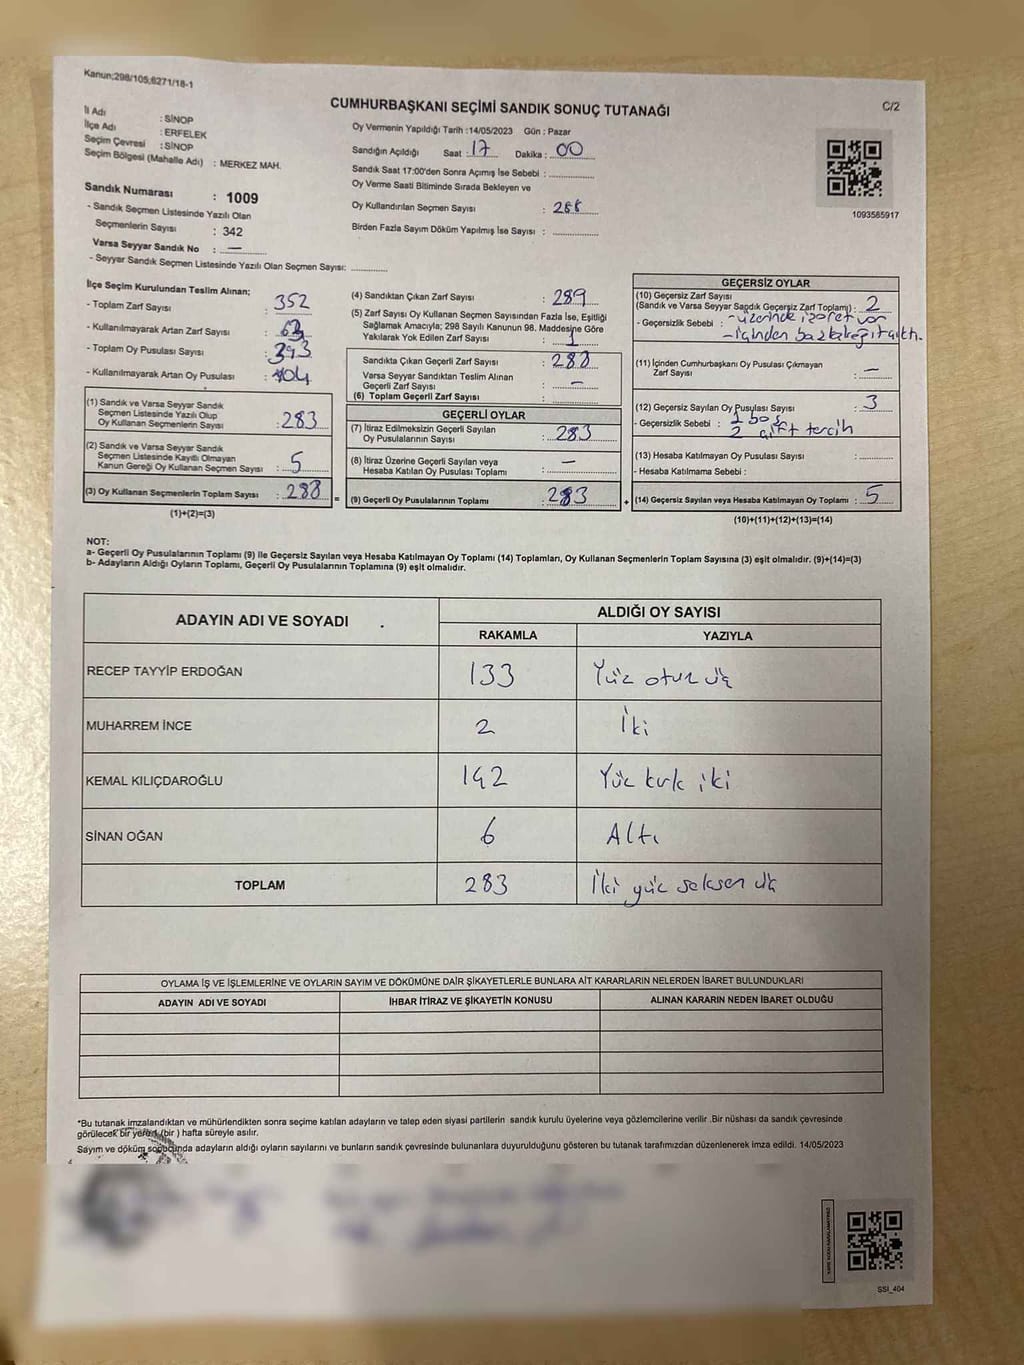 Kanun;298/105,6271/18-1
CUMHURBAŞKANI SEÇİMİ SANDIK SONUÇ TUTANAĞI
C/2
İl Adı : SİNOP
İlçe Adı : ERFELEK
Seçim Çevresi : SİNOP
Seçim Bölgesi (Mahalle Adı) : MERKEZ MAH.
Sandık Numarası : 1009
- Sandık Seçmen Listesinde Yazılı Olan
Seçmenlerin Sayısı : 342
Varsa Seyyar Sandık No : —
- Seyyar Sandık Seçmen Listesinde Yazılı Olan Seçmen Sayısı: ............
Oy Vermenin Yapıldığı Tarih :14/05/2023 Gün : Pazar
Sandığın Açıldığı Saat : 17 Dakika : 00
Sandık Saat 17:00'den Sonra Açımış İse Sebebi : ..............
Oy Verme Saati Bitiminde Sırada Bekleyen ve
Oy Kullandırılan Seçmen Sayısı :
Birden Fazla Sayım Döküm Yapılmış İse Sayısı : ..............
1093565917
İlçe Seçim Kurulundan Teslim Alınan;
- Toplam Zarf Sayısı : 352
- Kullanılmayarak Artan Zarf Sayısı :
- Toplam Oy Pusulası Sayısı :
- Kullanılmayarak Artan Oy Pusulası :
(1) Sandık ve Varsa Seyyar Sandık
Seçmen Listesinde Yazılı Olup
Oy Kullanan Seçmenlerin Sayısı : 283
(2) Sandık ve Varsa Seyyar Sandık
Seçmen Listesinde Kayıtlı Olmayan
Kanun Gereği Oy Kullanan Seçmen Sayısı : 5
(3) Oy Kullanan Seçmenlerin Toplam Sayısı : 288 =
(1)+(2)=(3)
(4) Sandıktan Çıkan Zarf Sayısı : 289
(5) Zarf Sayısı Oy Kullanan Seçmen Sayısından Fazla İse, Eşitliği
Sağlamak Amacıyla; 298 Sayılı Kanunun 98. Maddesine Göre
Yakılarak Yok Edilen Zarf Sayısı : 1
Sandıkta Çıkan Geçerli Zarf Sayısı : 288
Varsa Seyyar Sandıktan Teslim Alınan
Geçerli Zarf Sayısı : —
(6) Toplam Geçerli Zarf Sayısı : ..............
GEÇERLİ OYLAR
(7) İtiraz Edilmeksizin Geçerli Sayılan
Oy Pusulalarının Sayısı : 283
(8) İtiraz Üzerine Geçerli Sayılan veya
Hesaba Katılan Oy Pusulası Toplamı : —
(9) Geçerli Oy Pusulalarının Toplamı : 283 +
GEÇERSİZ OYLAR
(10) Geçersiz Zarf Sayısı
(Sandık ve Varsa Seyyar Sandık Geçersiz Zarf Toplamı) : 2
- Geçersizlik Sebebi : - üzerinde işaret var
- içinden başka
(11) İçinden Cumhurbaşkanı Oy Pusulası Çıkmayan
Zarf Sayısı : —
(12) Geçersiz Sayılan Oy Pusulası Sayısı : 3
- Geçersizlik Sebebi : 1 boş
2 çift tercih
(13) Hesaba Katılmayan Oy Pusulası Sayısı : ............
- Hesaba Katılmama Sebebi :
(14) Geçersiz Sayılan veya Hesaba Katılmayan Oy Toplamı : 5
(10)+(11)+(12)+(13)=(14)
NOT:
a- Geçerli Oy Pusulalarının Toplamı (9) ile Geçersiz Sayılan veya Hesaba Katılmayan Oy Toplamı (14) Toplamları, Oy Kullanan Seçmenlerin Toplam Sayısına (3) eşit olmalıdır. (9)+(14)=(3)
b- Adayların Aldığı Oyların Toplamı, Geçerli Oy Pusulalarının Toplamına (9) eşit olmalıdır.
ADAYIN ADI VE SOYADI
ALDIĞI OY SAYISI
RAKAMLA YAZIYLA
RECEP TAYYİP ERDOĞAN 133 Yüz otuz üç
MUHARREM İNCE 2 İki
KEMAL KILIÇDAROĞLU 142 Yüz kırk iki
SİNAN OĞAN 6 Altı
TOPLAM 283 İki yüz seksen üç
OYLAMA İŞ VE İŞLEMLERİNE VE OYLARIN SAYIM VE DÖKÜMÜNE DAİR ŞİKAYETLERLE BUNLARA AİT KARARLARIN NELERDEN İBARET BULUNDUKLARI
ADAYIN ADI VE SOYADI İHBAR İTİRAZ VE ŞİKAYETİN KONUSU ALINAN KARARIN NEDEN İBARET OLDUĞU
*Bu tutanak imzalandıktan ve mühürlendikten sonra seçime katılan adayların ve talep eden siyasi partilerin sandık kurulu üyelerine veya gözlemcilerine verilir .Bir nüshası da sandık çevresinde
görülecek bir yerde (bir ) hafta süreyle asılır.
Sayım ve döküm sonucunda adayların aldığı oyların sayılarını ve bunların sandık çevresinde bulunanlara duyurulduğunu gösteren bu tutanak tarafımızdan düzenlenerek imza edildi. 14/05/2023
SSI_404